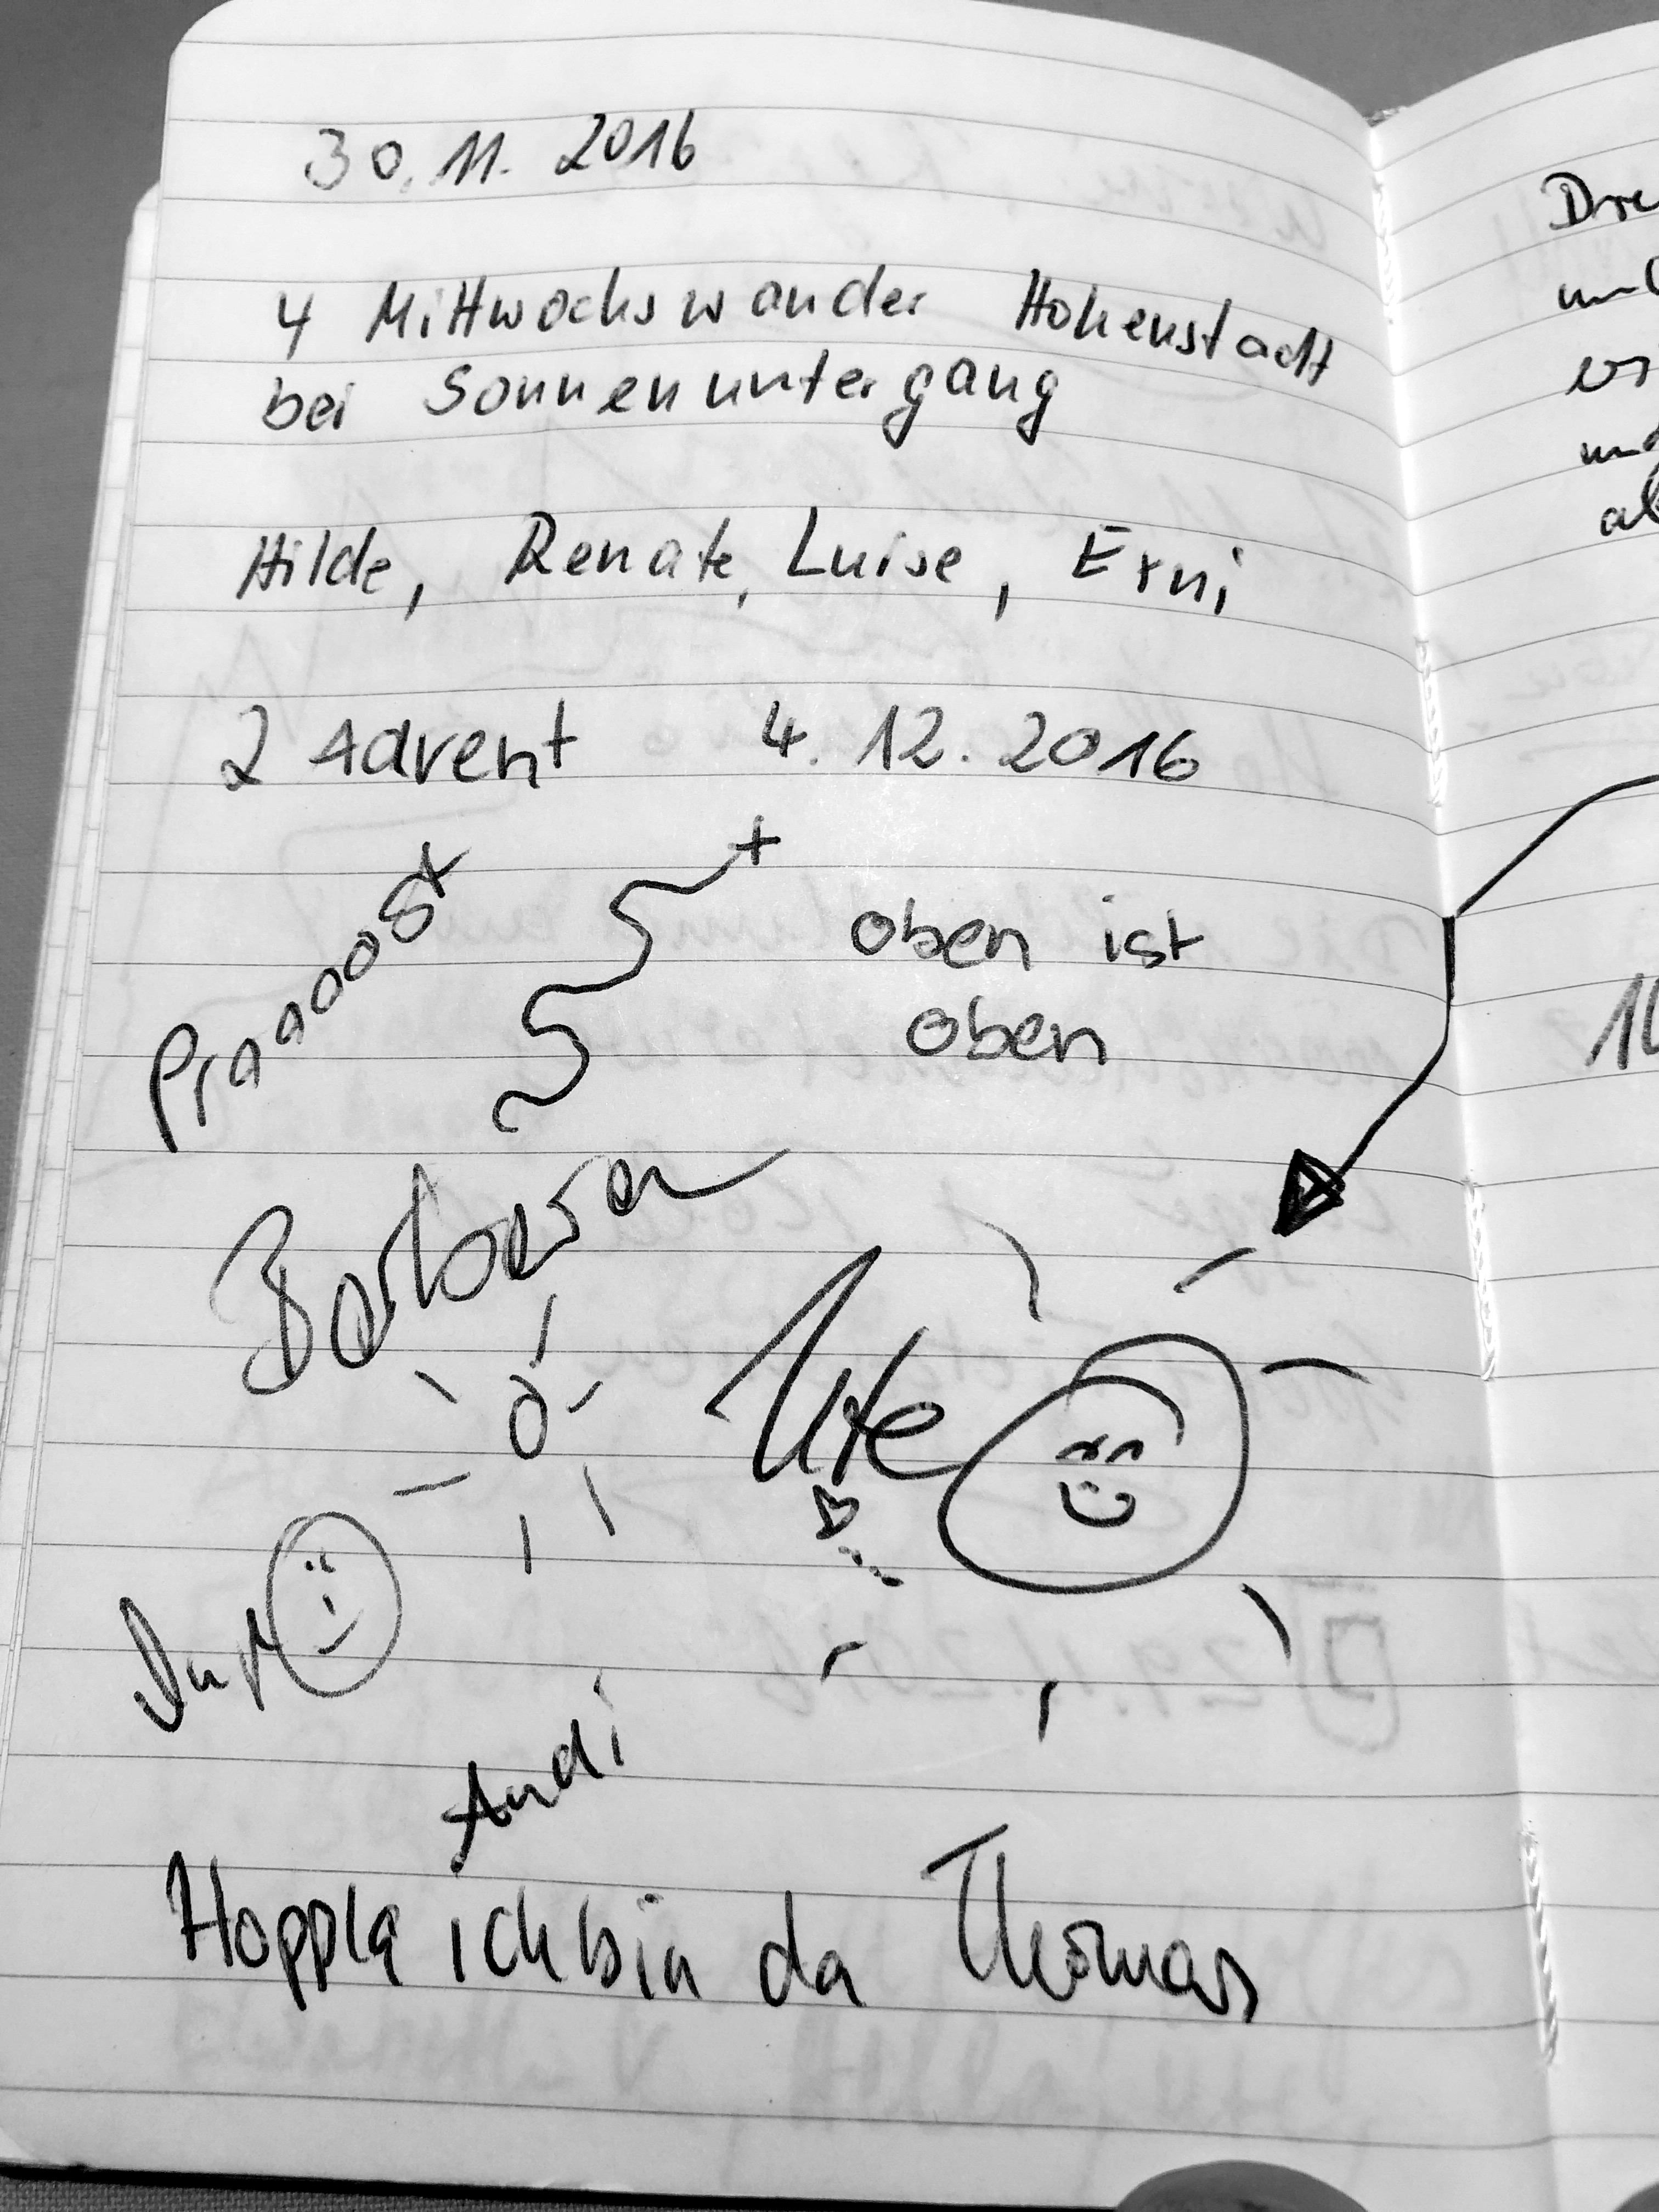 30.11.2016
4 Mittwochswander Hohenstadt
bei Sonnenuntergang
Hilde, Renate, Luise, Erni
2 Advent 4.12.2016
Praaooost
oben ist
oben
Barbara
Ute
Andi
Hoppla ich bin da Thomas